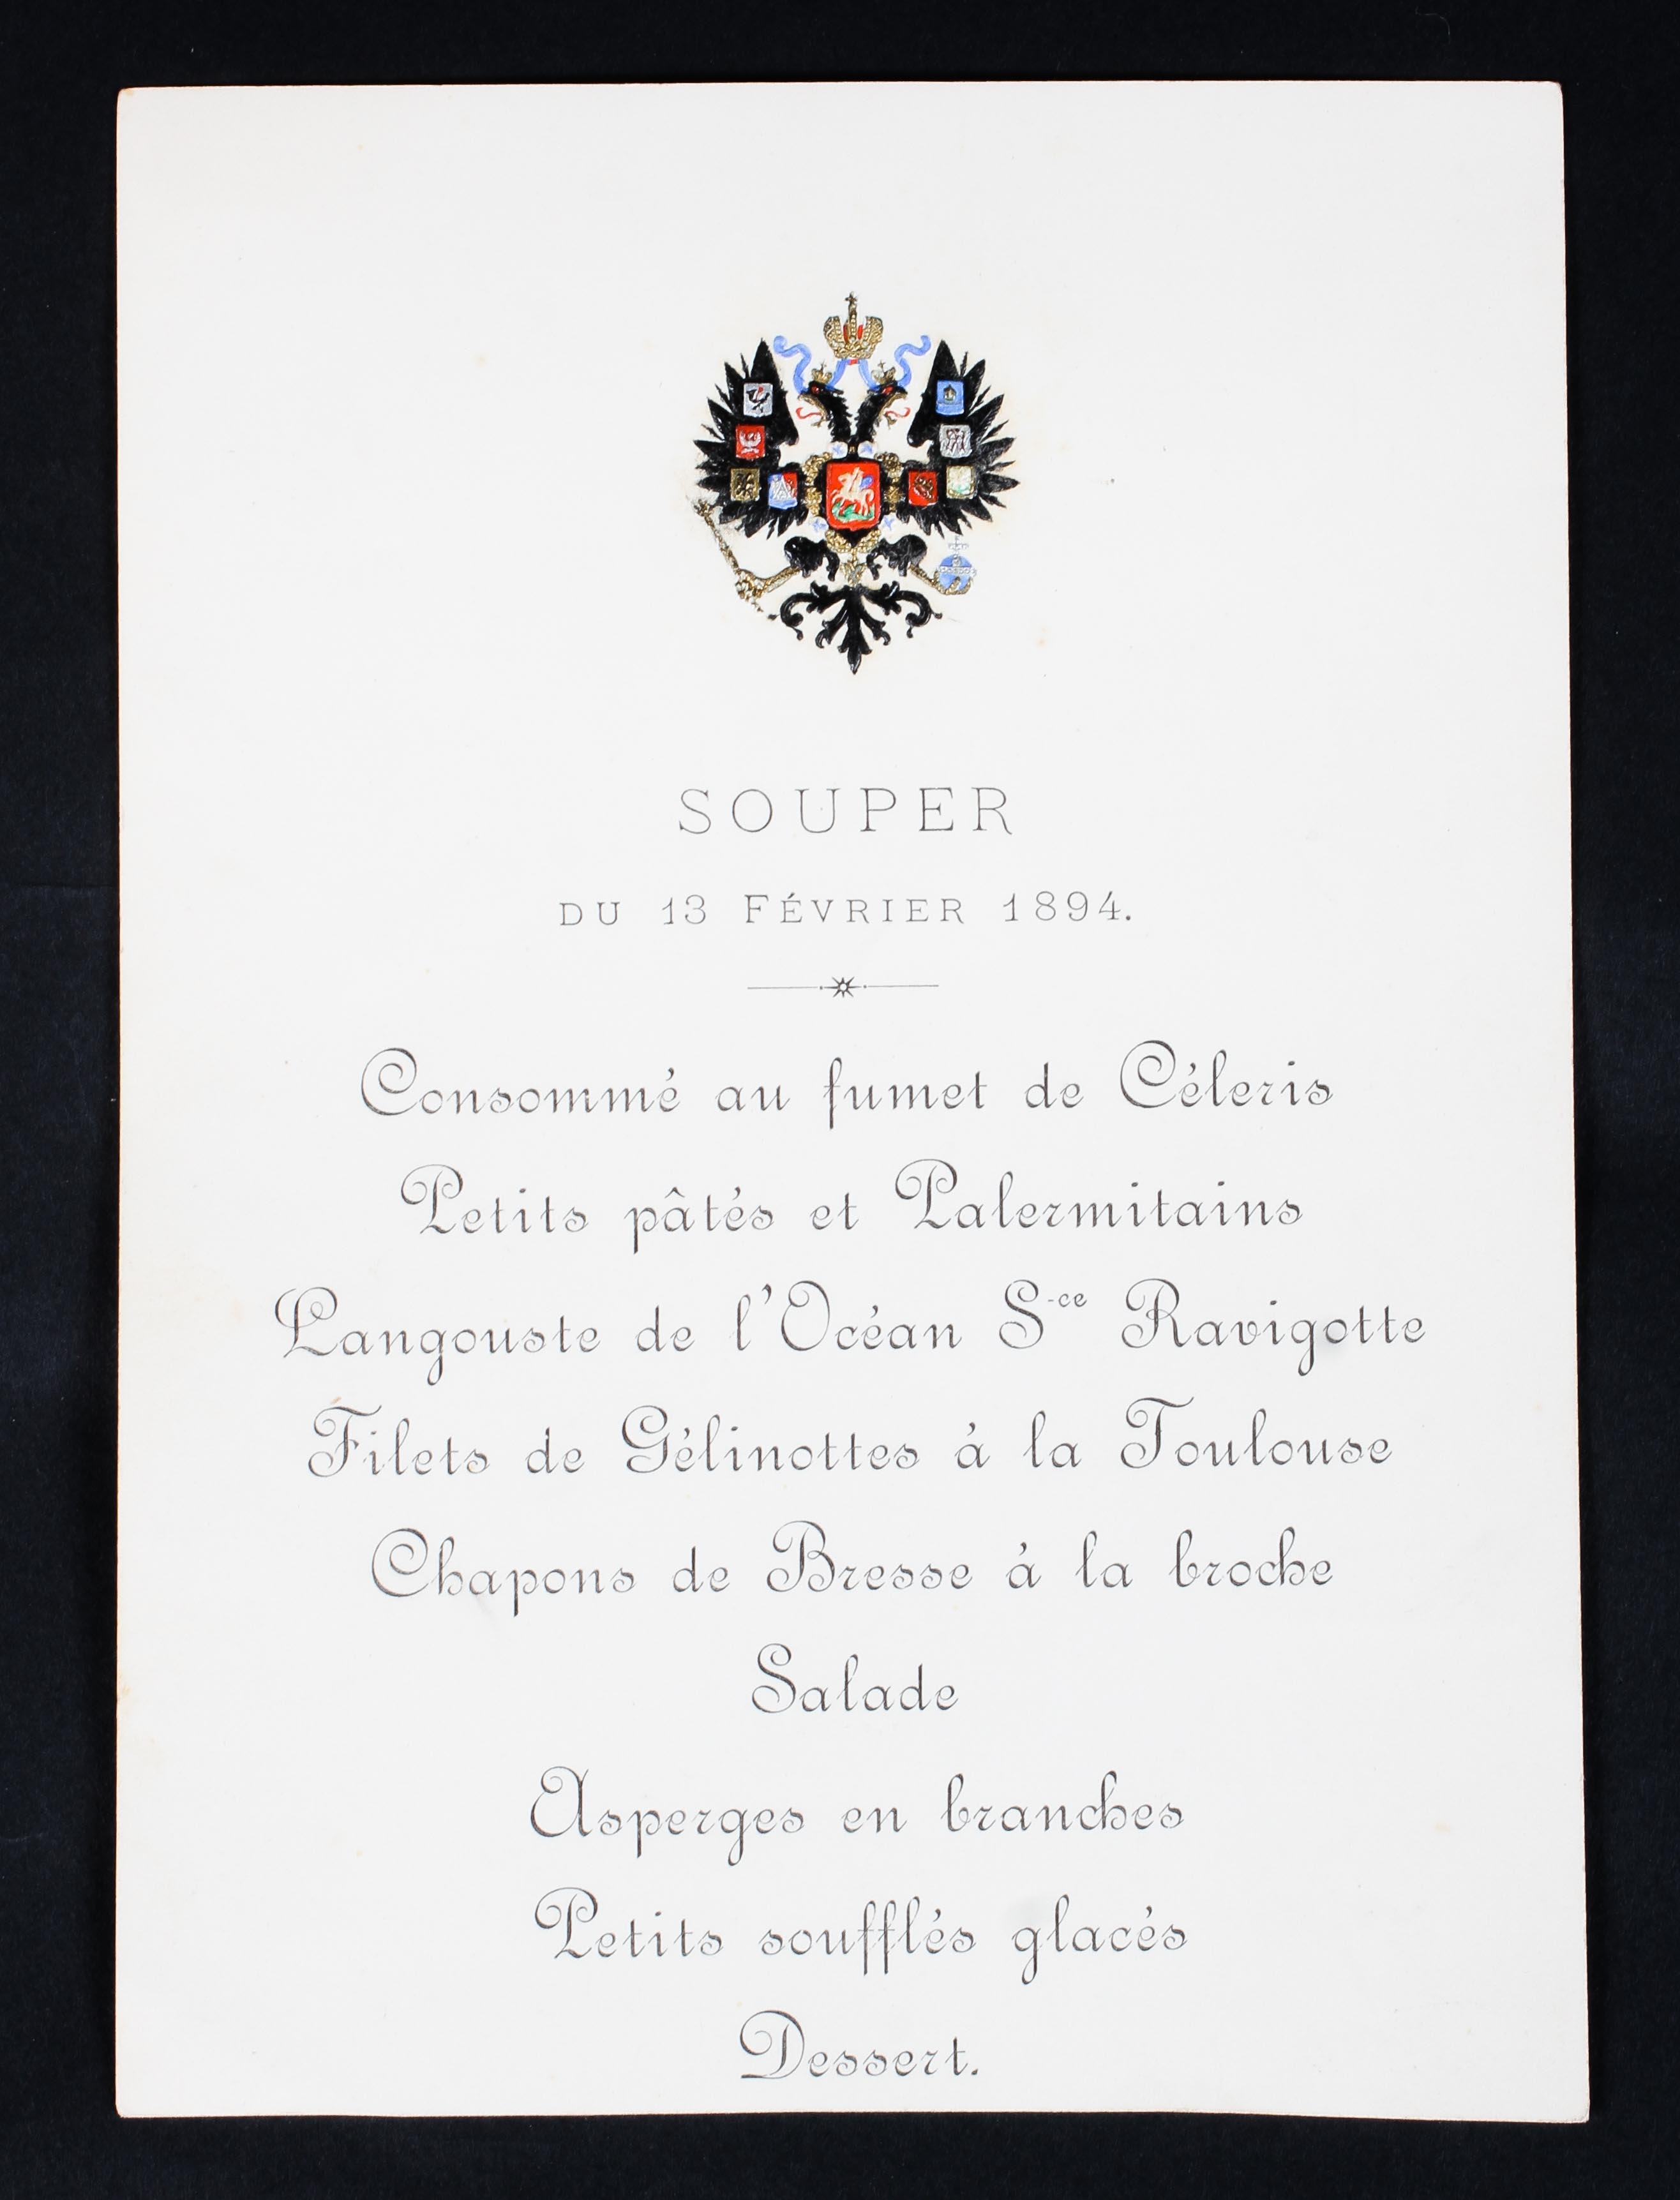 SOUPER
DU 13 FÉVRIER 1894.
Consommé au fumet de Céleris
Petits pâtés et Palermitains
Langouste de l'Océan S-ce Ravigotte
Filets de Gélinottes à la Toulouse
Chapons de Bresse à la broche
Salade
Asperges en branches
Petits soufflés glacés
Dessert.